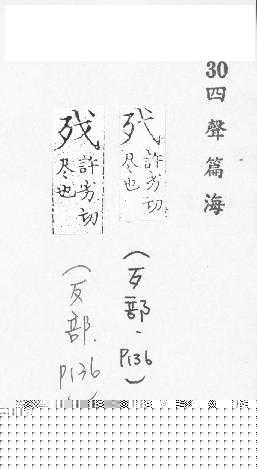 30 四聲篇海
許劣切
尽也
(歹部.P136)
許劣切
尽也
(歹部.P136